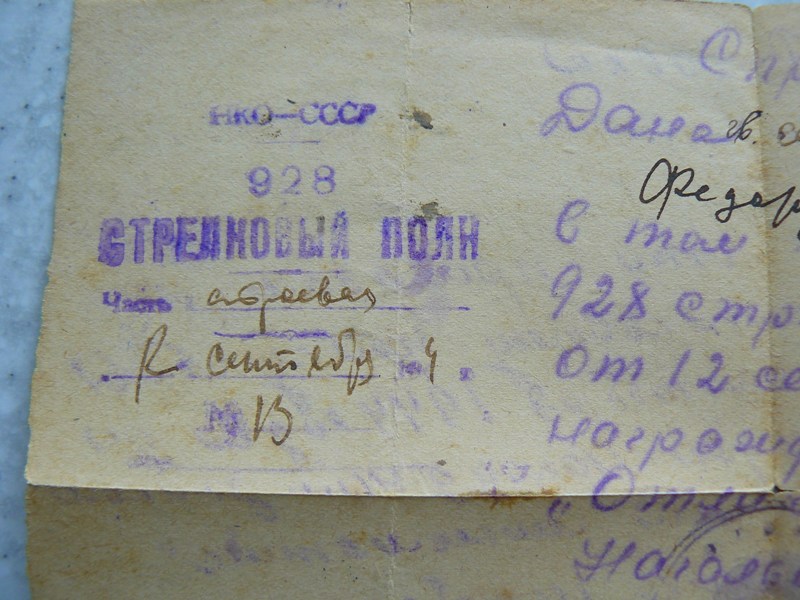 НКО—СССР
928
СТРЕЛКОВЫЙ ПОЛК
Часть строевая
12 сентября 4
№ 13
Спр
Дана гв. се
Федор
в том
928 стр
от 12 се
награжд
„Отли
Началь